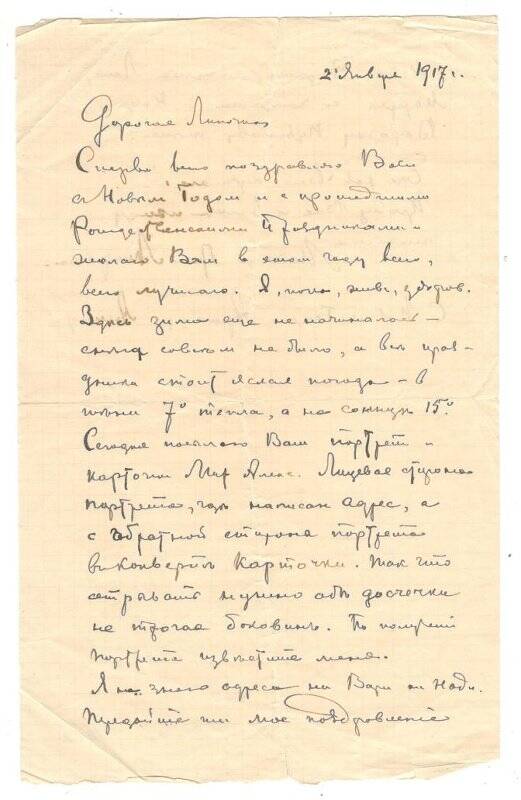 2 Января 1917 г.
Дорогая Линочка
Сперва всего поздравляю Васъ
съ Новымъ Годомъ и с прошедшими
Рождественскими Праздниками и
желаю Вам в этом году всего,
всего лучшаго. Я, пока, живъ, здоров.
Здесь зима еще не начиналась –
снѣга совсѣм не было, а всѣ праз-
дники стоит ясная погода – в
тѣни 7° тепла, а на солнце 15°
Сегодня посылаю Вам портрет и
карточки Мар Алекс. Лицевая сторона
портрета, гдѣ написан адрес, а
с обратной стороны портрета
в конвертѣ карточки. Так что
отрывать нужно обѣ досчечки
не трогая боковинъ. По получении
портрета извѣстите меня.
Я не знаю адреса ни Вари ни Нади.
Передайте им мое поздравление